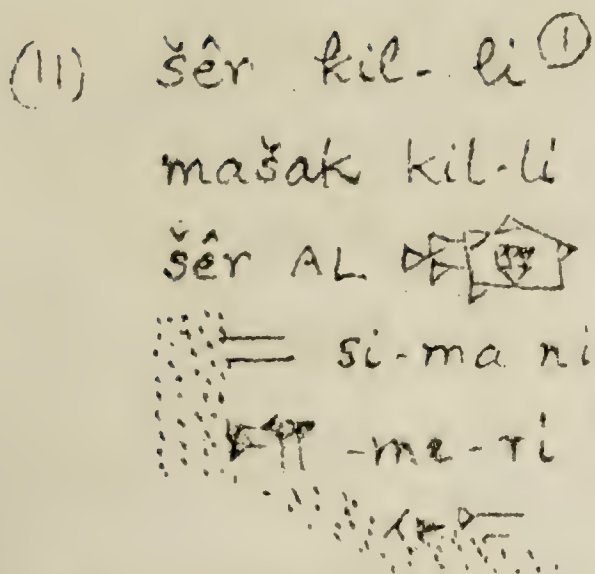 (11) šêr kil-li ①
mašak kil-li
šêr AL
si-ma ni
-me-ri